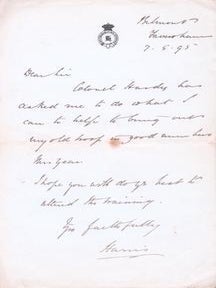 Belmont
Faversham
7. 5. 95
Dear Sir
Colonel Hardy has
asked me to do what I
can to help to bring out
my old troop in good numbers
this year.
I hope you will do yr best to
attend the training.
Yrs faithfully
Harris